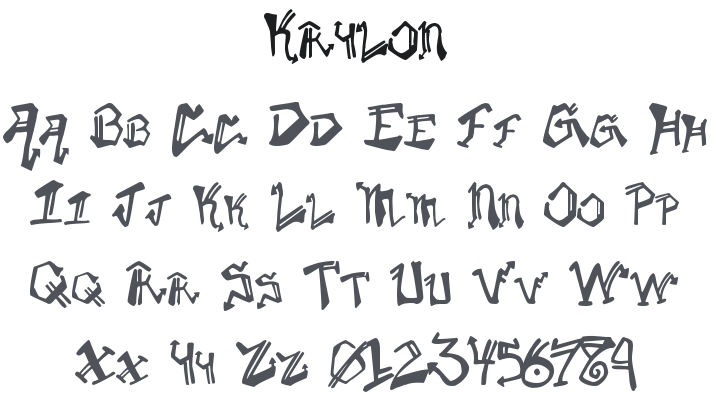 Krylon
Aa Bb Cc Dd Ee Ff Gg Hh
Ii Jj Kk Ll Mm Nn Oo Pp
Qq Rr Ss Tt Uu Vv Ww
Xx Yy Zz 0123456789